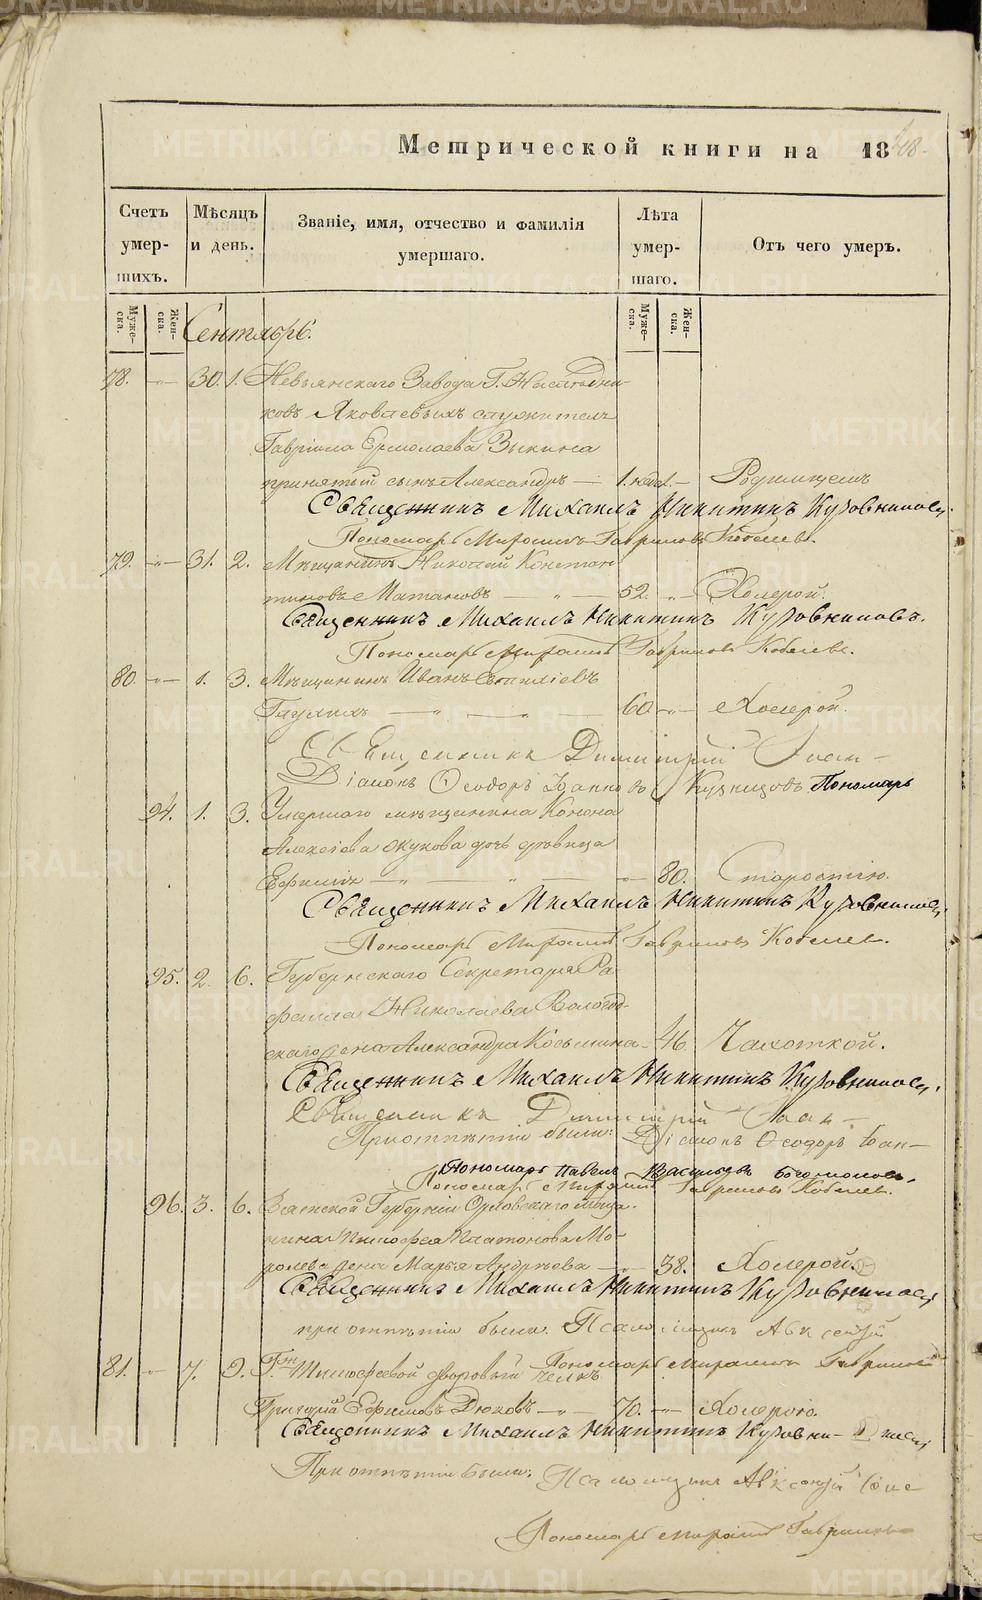 METRIKI.GASO-URAL.RU
Метрической книги на 1848.
Счетъ умер-шихъ.
Мѣсяцъ и день.
Званіе, имя, отчество и фамилія умершаго.
Лѣта умер-шаго.
Отъ чего умеръ.
Муже-ска.
Жен-ска.
Муже-ска.
Жен-ска.
Сентябрь.
78. 30. 1. Невьянскаго Завода Г. Наслѣдни-
ковъ Яковлевыхъ служителя
Гавріила Ермолаева Зыкина
принятый сынъ Александръ 1. нед. Родимцемъ
Священникъ Михаилъ Никитинъ Кузовниковъ.
Пономарь Миронъ Гавриловъ Кобелевъ.
79. 31. 2. Мѣщанинъ Николай Констан-
тиновъ 52. Холерой.
Священникъ Михаилъ Никитинъ Кузовниковъ.
Пономарь Миронъ Гавриловъ Кобелевъ.
80. 1. 3. Мѣщанинъ Иванъ
60 Холерой.
Священникъ Димитрій
Діаконъ Ѳеодоръ Пономарь
94. 1. 3. Умершаго мѣщанина Конона
Алексѣева дочь дѣвица
80. Старостію.
Священникъ Михаилъ Никитинъ Кузовниковъ.
Пономарь Миронъ Гавриловъ Кобелев.
95. 2. 6. Губернскаго Секретаря Ра-
фаила Николаева Вологод-
скаго жена Александра Козьмина 46. Чахоткой.
Священникъ Михаилъ Никитинъ Кузовниковъ.
Священникъ Димитрій
При отпѣтіи были: Діаконъ Ѳеодоръ
Пономарь Павелъ Васильевъ Богомоловъ.
Пономарь Миронъ Гавриловъ Кобелев.
96. 3. 6. Вятской Губерніи Орловскаго мѣща-
нина Тимофея Платонова Мо-
ролева жена Марья Андрѣева 38. Холерой.
Священникъ Михаилъ Никитинъ Кузовниковъ
при отпѣтіи были: Псаломщикъ
Пономарь Миронъ Гавриловъ
81. 7. 9. Г-жи Тимофеевой дворовый челов.
Григорій Ефимовъ Дюковъ 70. Холерою.
Священникъ Михаилъ Никитинъ Кузовни-
При отпѣтіи были: Псаломщикъ
Пономарь Миронъ Гавриловъ